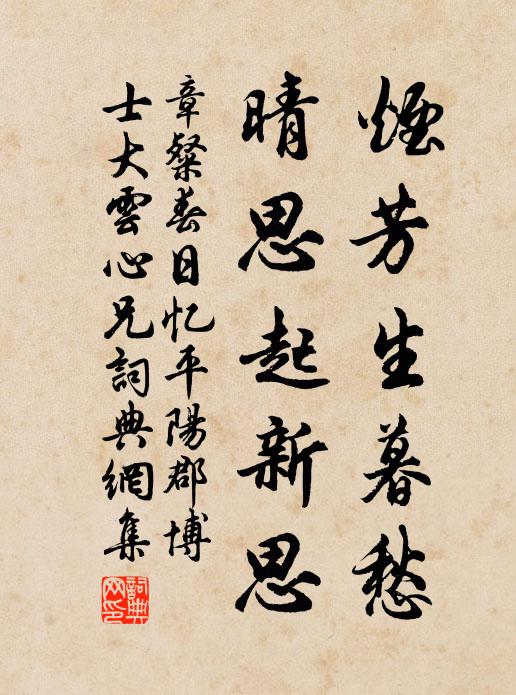 煙芳生暮愁
晴思起新思
章粲春日忆平陽郡博
士大雲心兄詞典網集
詞典
网印